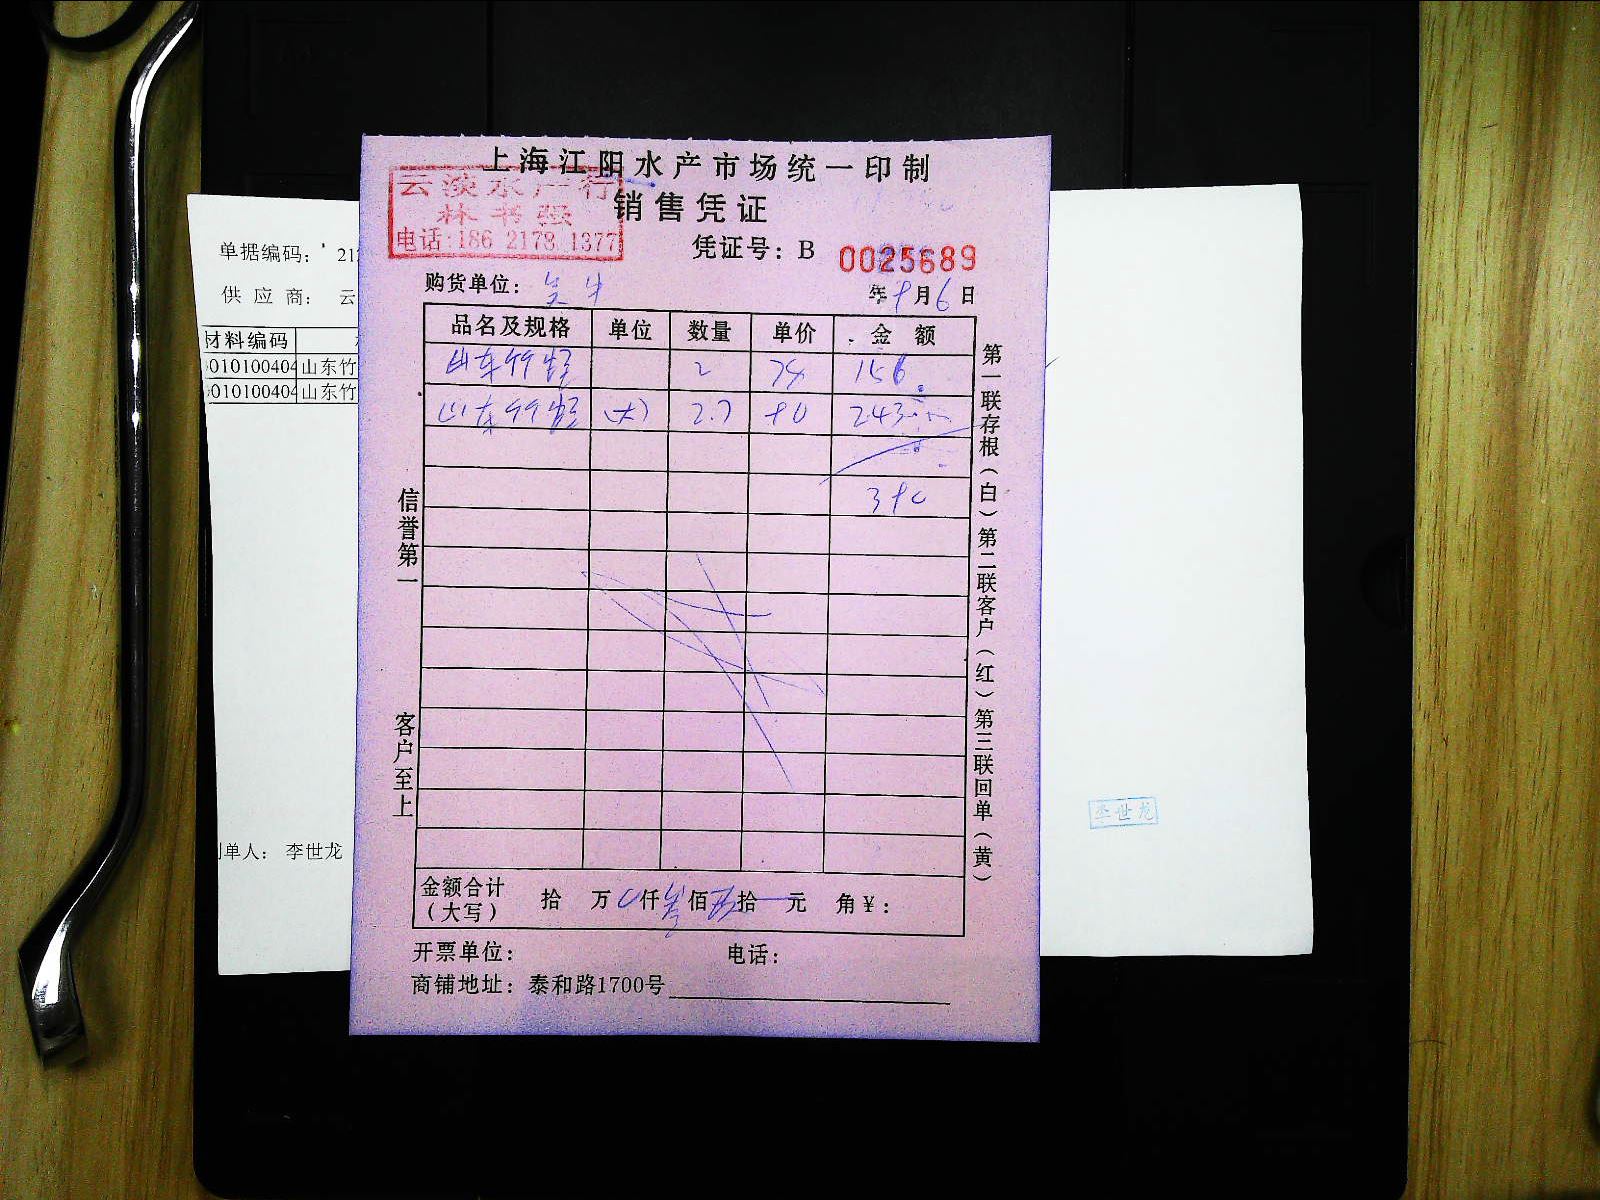 上海江阳水产市场统一印制
云淡水产行
林书强
电话:186 2178 1377
销售凭证
凭证号：B 0025689
购货单位：
年 8月6日
品名及规格 单位 数量 单价 金额
山东竹蛏 2 78 156
山东竹蛏 (大) 2.7 90 243
信誉第一
客户至上
第一联存根（白）第二联客户（红）第三联回单（黄）
金额合计（大写） 拾 万 仟 佰 拾 元 角￥：
开票单位： 电话：
商铺地址：泰和路1700号
单据编码： 21
供应商： 云
材料编码
010100404 山东竹
010100404 山东竹
制单人： 李世龙
李世龙